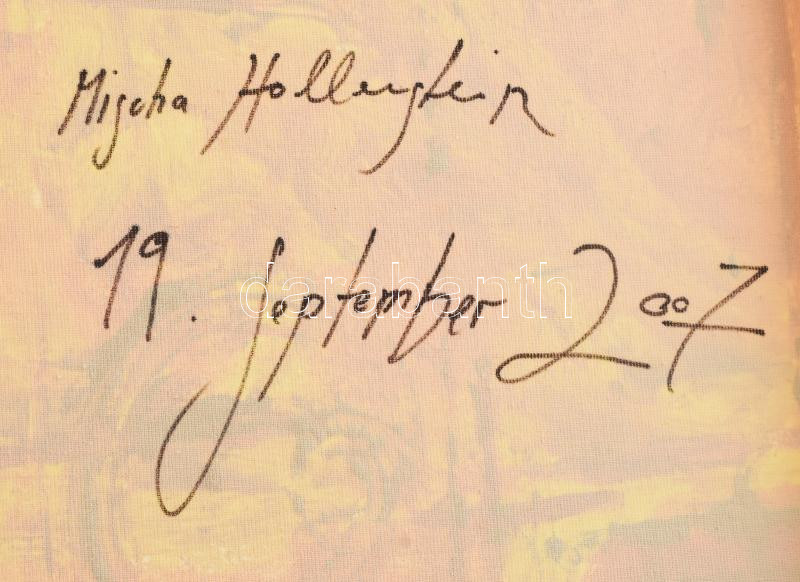 Mischa Hollenstein
19. September 2007
darabanth